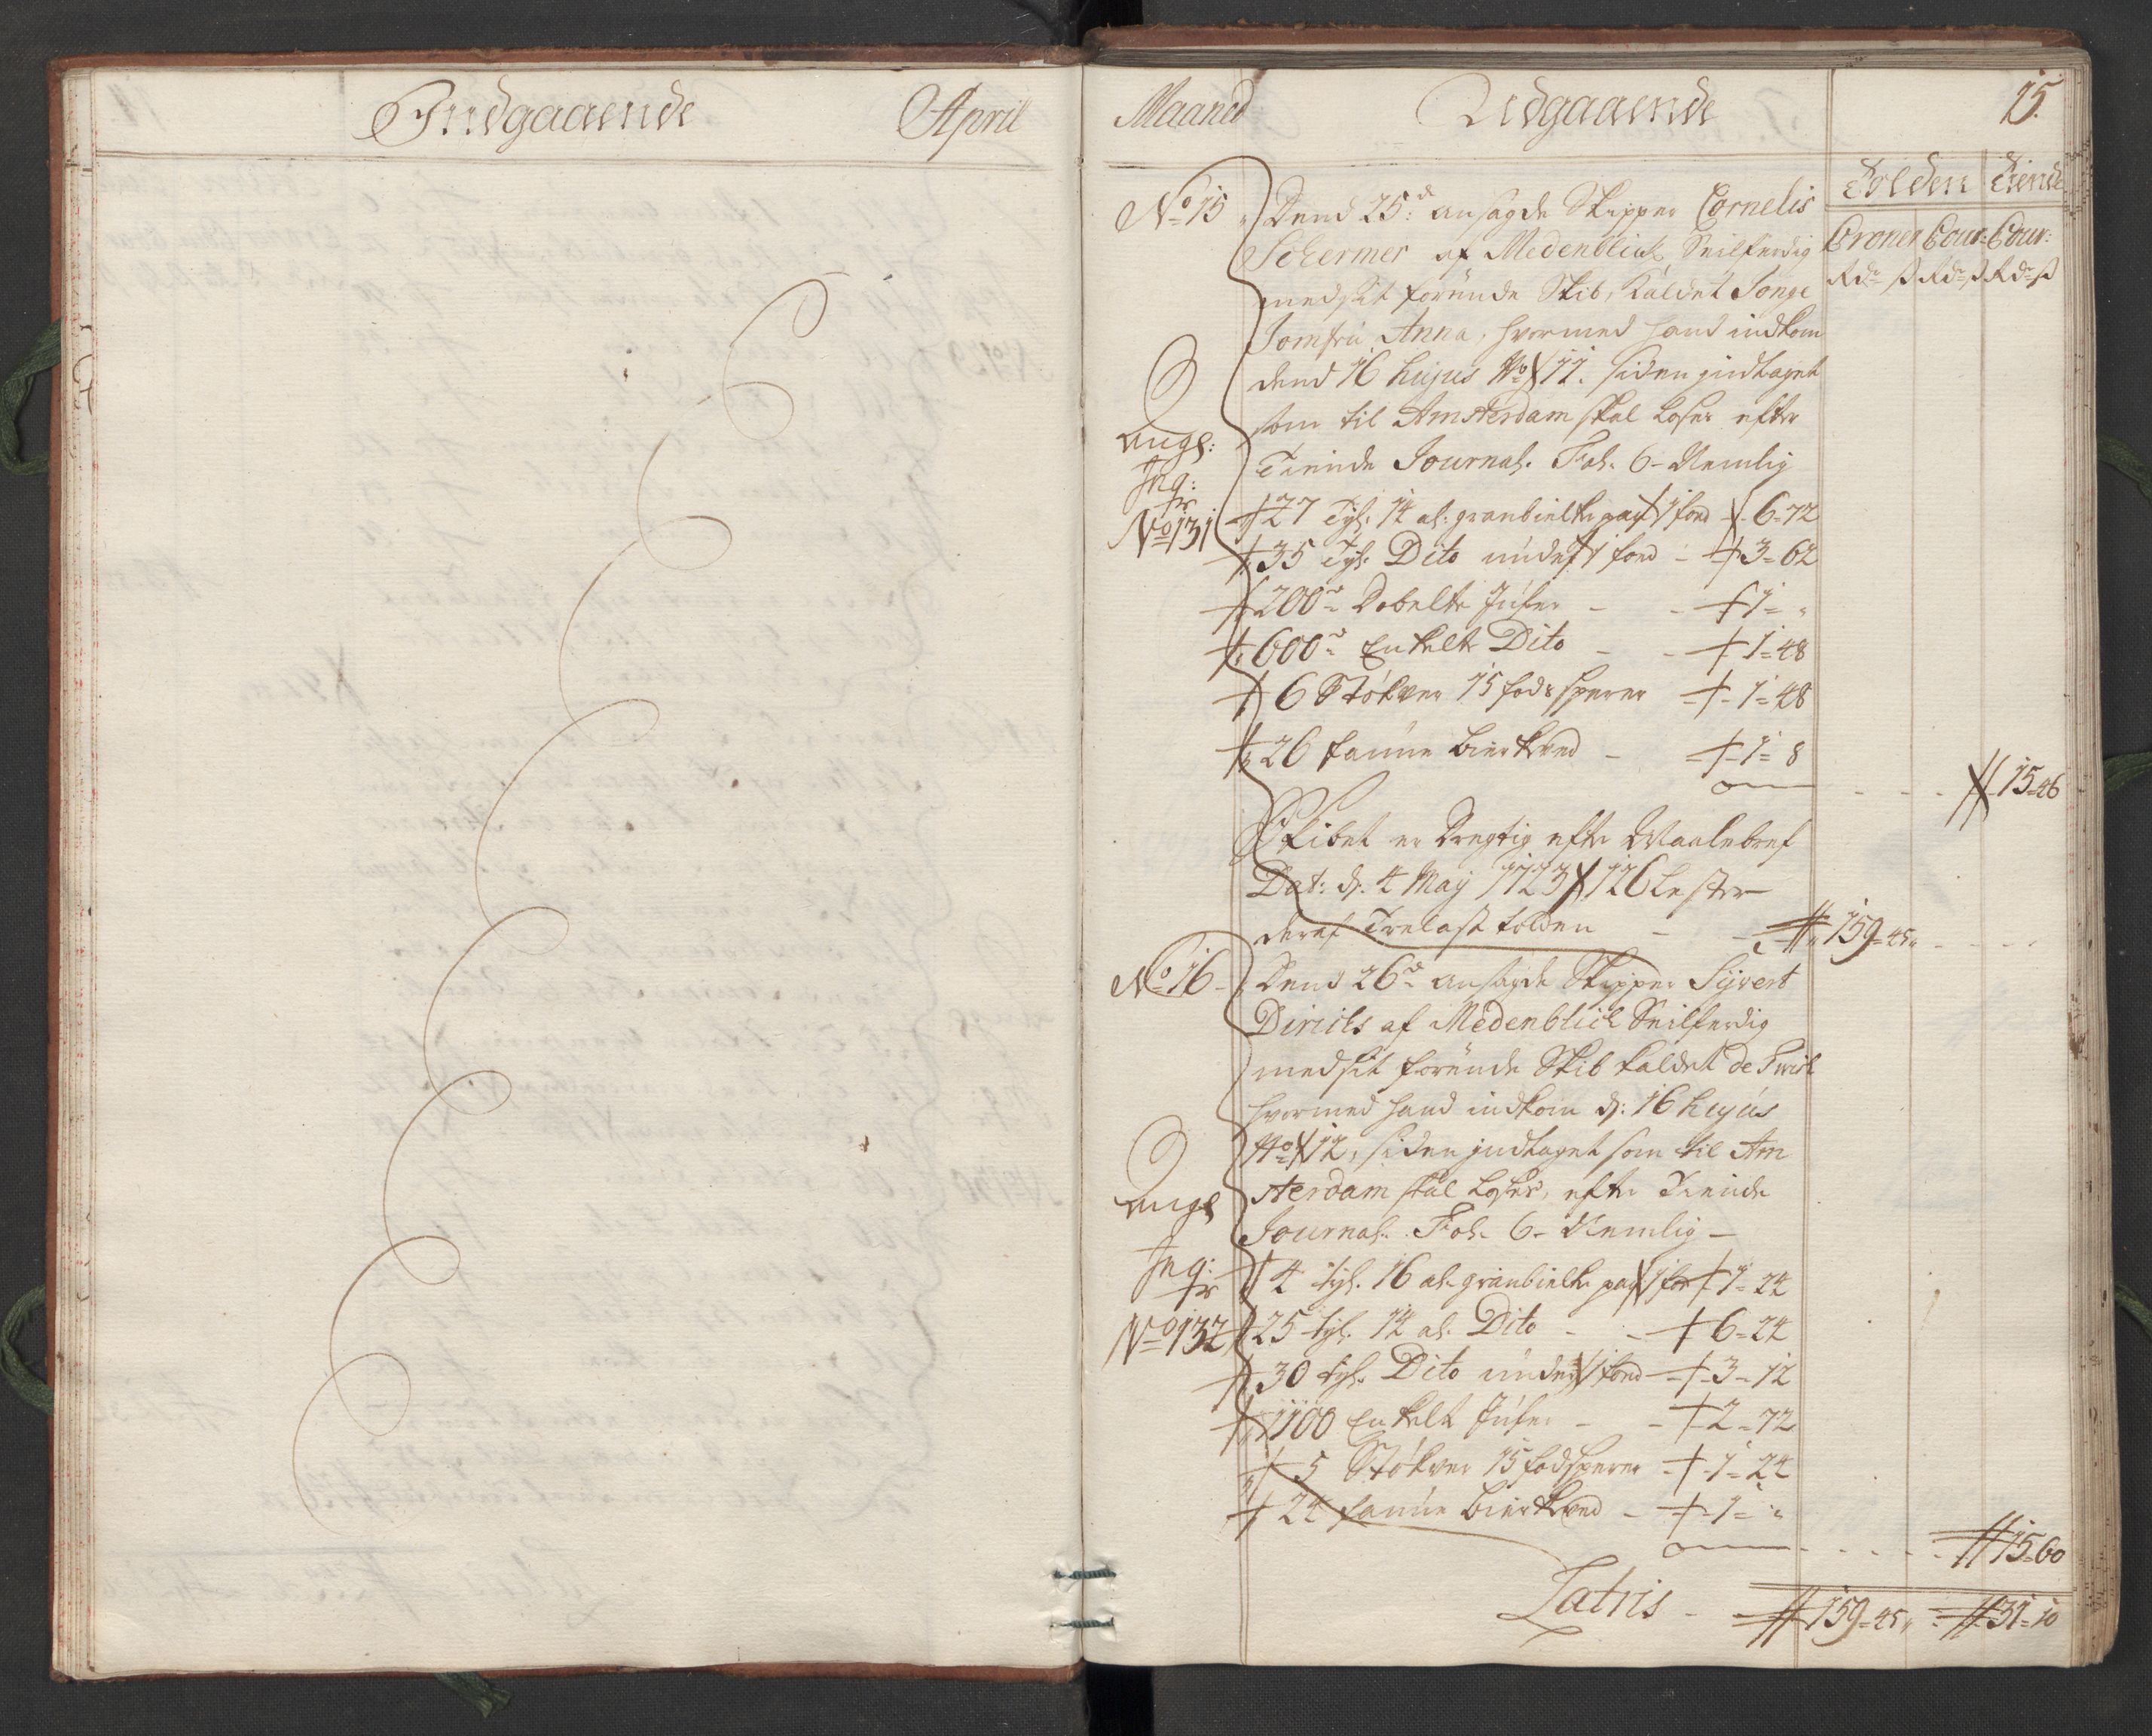 Indgaaende April
Maaned Udgaaende 15.
Tolden Tiende
Croner Cour: Cour:
Rdr ß Rdr ß Rdr ß
No 15 Dend 25d: ansagde Skipper Cornelis
Schermer af Medenblick Seilferdig
med sit förende Skib, kaldet Jonge
Jomfru Anna, hvormed hand indkom
dend 16 hujus No 11. siden indtaget
som til Amsterdam skal loses efter
Tiende Journal. Fol. 6 - Nemlig
Angl:
Inq:
fr
No 131
27 Tyl. 14 al. granbielker paa 1 foed - 6=72
35 Tyl. Dito under 1 foed - 3=62
200de Dobelte Jufer - - 1= "
600de Enkelte Dito - - 1=48
6 Støkver 15 fods sperer - 1=48
26 famne birkeved - 1=8
15=46
Skibet er Dregtig efter Maalebref
Dat: d. 4 May 1723 126 Lester
deraf Trelast tolden - - 159=45
No 16 - Dend 26de ansagde Skipper Sijvert
Diricks af Medenblick Seilferdig
med sit förende Skib kaldet de
hvormed hand indkom d: 16 hujus
No 12, siden indtaget som til Am
sterdam skal loses, efter Tiende
Journal. Fol. 6 - Nemlig -
Angl
Inq:
fr
No 132
4 tyl. 16 al. granbielker paa 1 foed 1=24
25 tyl. 14 al. Dito - - 6=24
30 tyl. Dito under 1 foed - 3=12
1100 Enkelte Jufer - - 2=72
5 Støkver 15 fods sperer - 1=24
24 famne birkeved - 1= "
15=60
Latris - 159=45 31=10